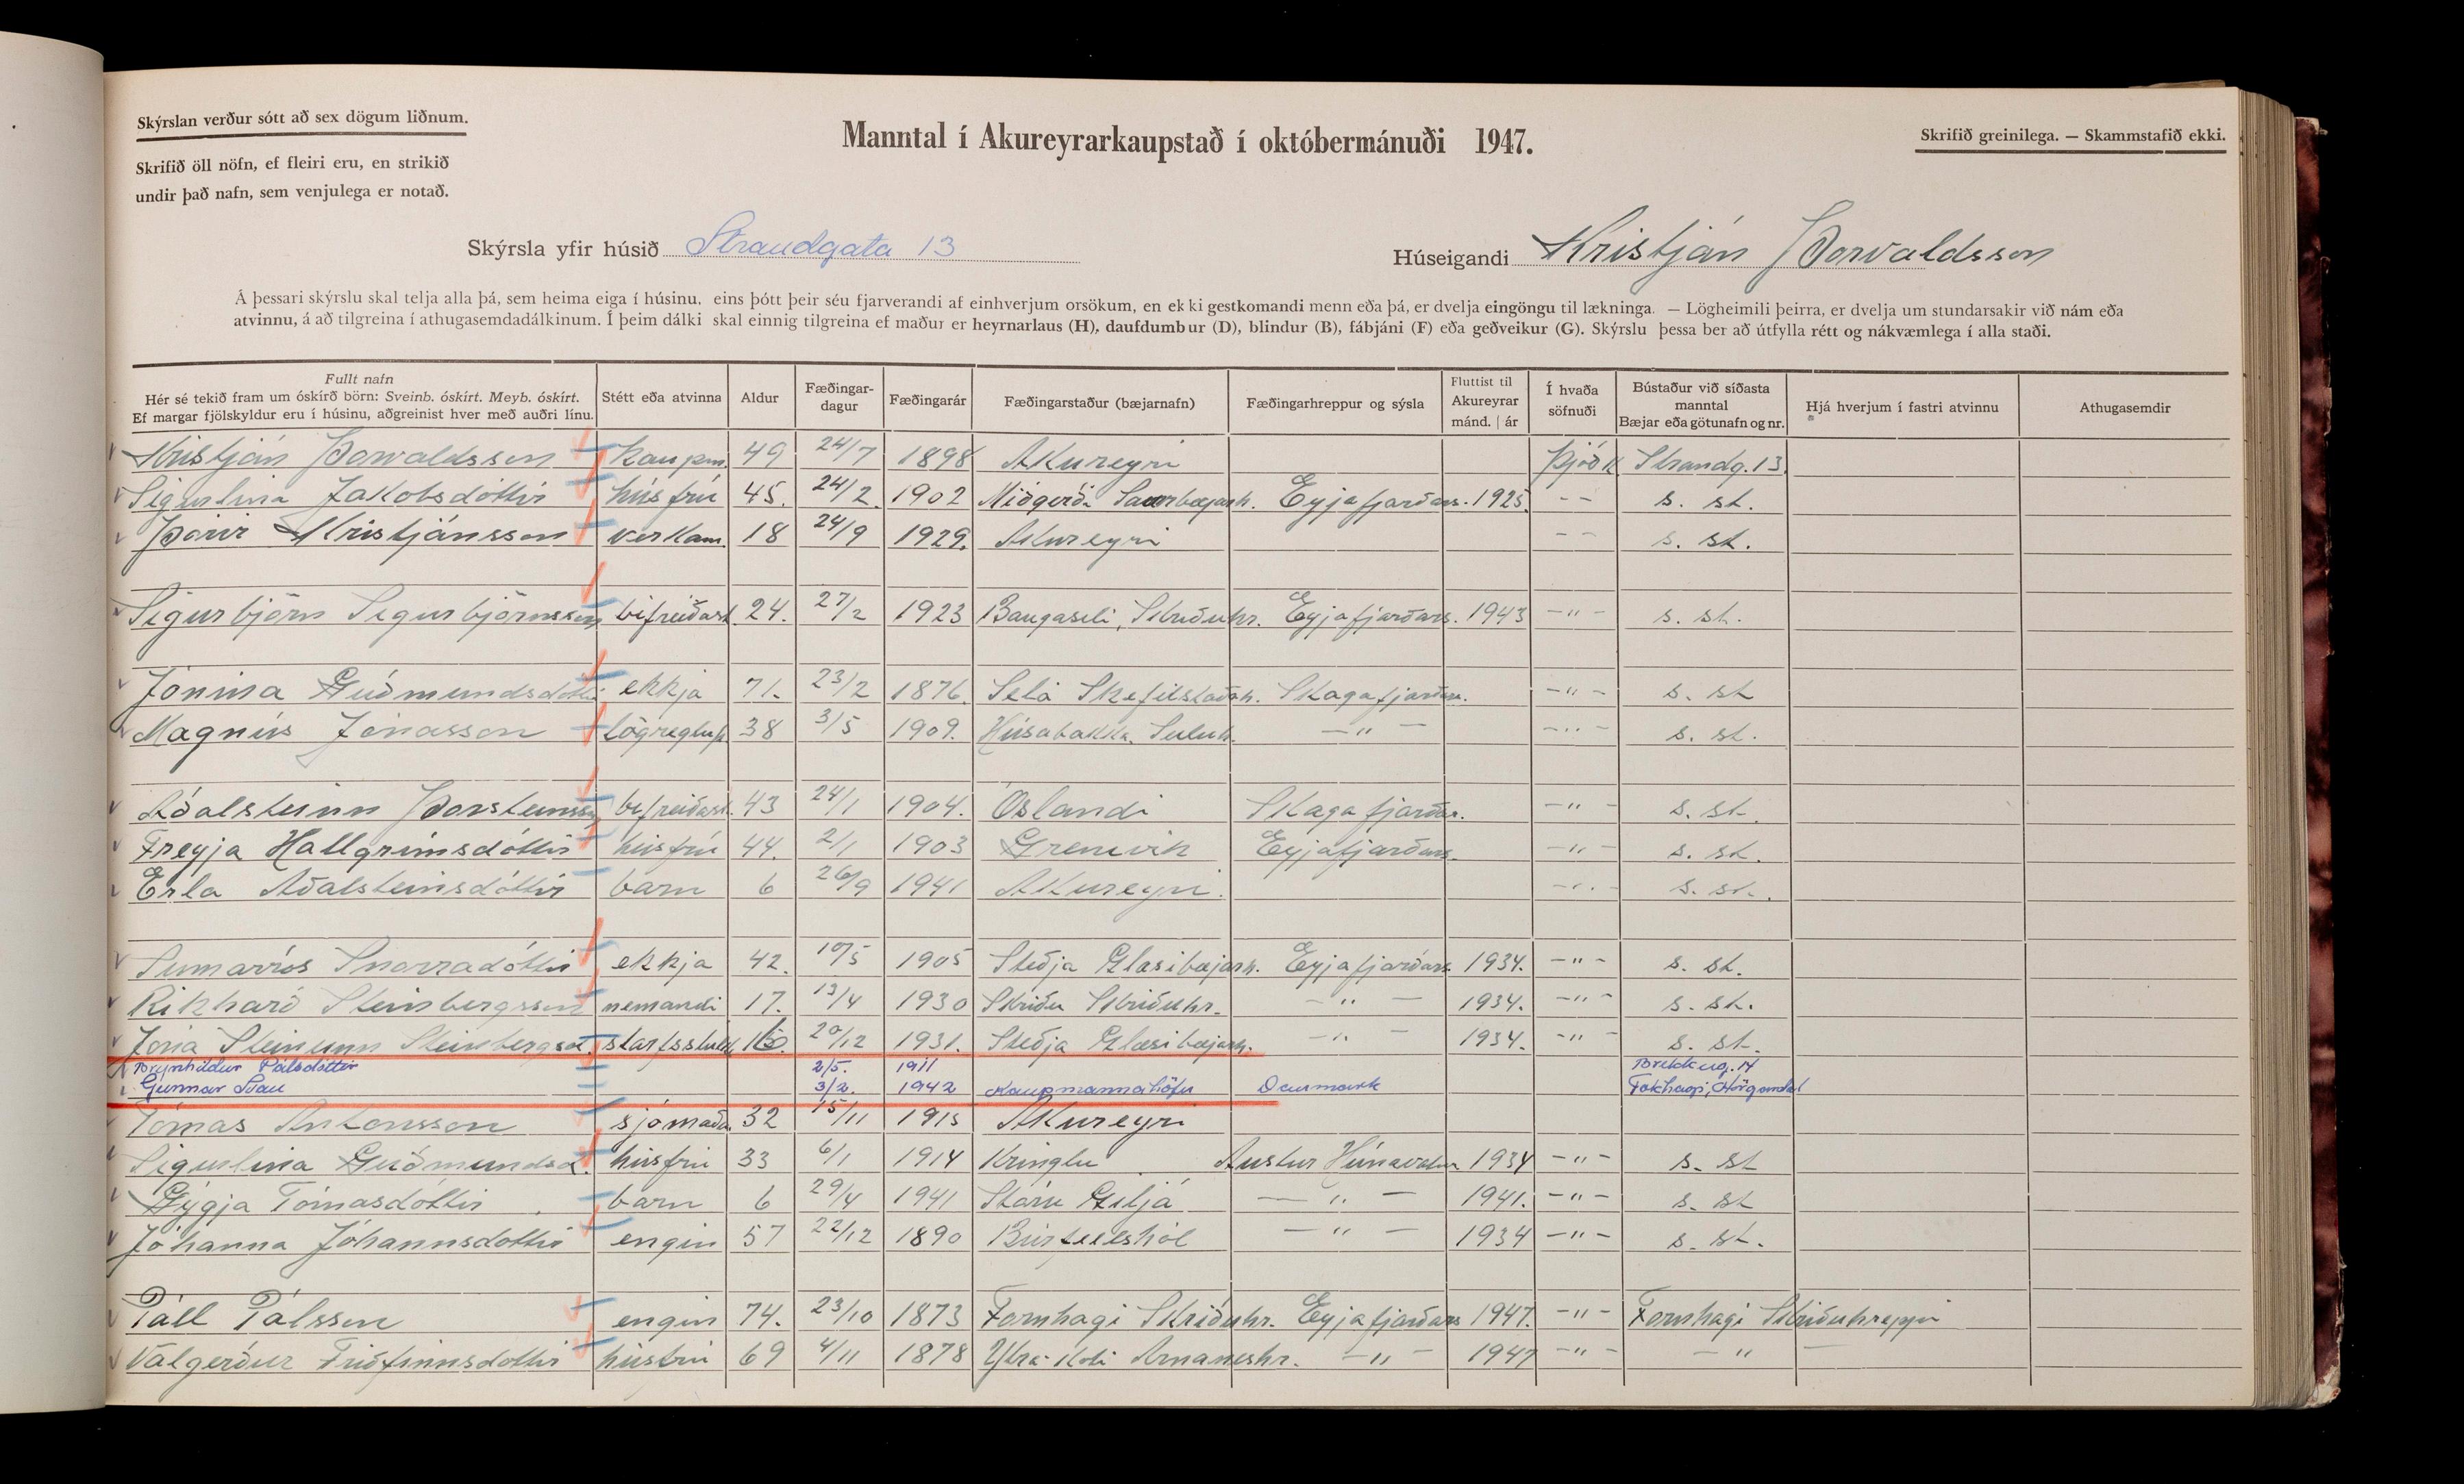 Skýrslan verður sótt að sex dögum liðnum.
Skrifið öll nöfn, ef fleiri eru, en strikið
undir það nafn, sem venjulega er notað.
Manntal í Akureyrarkaupstað í októbermánuði 1947.
Skrifið greinilega. — Skammstafið ekki.
Skýrsla yfir húsið Strandgata 13
Húseigandi Kristján Þorvaldsson
Á þessari skýrslu skal telja alla þá, sem heima eiga í húsinu, eins þótt þeir séu fjarverandi af einhverjum orsökum, en ekki gestkomandi menn eða þá, er dvelja eingöngu til lækninga. — Lögheimili þeirra, er dvelja um stundarsakir við nám eða
atvinnu, á að tilgreina í athugasemdadálkinum. Í þeim dálki skal einnig tilgreina ef maður er heyrnarlaus (H), daufdumbur (D), blindur (B), fábjáni (F) eða geðveikur (G). Skýrslu þessa ber að útfylla rétt og nákvæmlega í alla staði.
Fullt nafn
Hér sé tekið fram um óskírð börn: Sveinb. óskírt. Meyb. óskírt.
Ef margar fjölskyldur eru í húsinu, aðgreinist hver með auðri línu.
Stétt eða atvinna
Aldur
Fæðingar-
dagur
Fæðingarár
Fæðingarstaður (bæjarnafn)
Fæðingarhreppur og sýsla
Fluttist til
Akureyrar
mánd. | ár
Í hvaða
söfnuði
Bústaður við síðasta
manntal
Bæjar eða götunafn og nr.
Hjá hverjum í fastri atvinnu
Athugasemdir
Kristján Þorvaldsson kaupm. 49 24/7 1898 Akureyri Þjóðk Strandg. 13.
Sigurlína Jakobsdóttir húsfrú 45. 24/2 1902 Miðgerði Saurbæjarh. Eyjafjarðars. 1925. - - s. st.
Þórir Kristjánsson verkam. 18 24/9 1929. Akureyri - - s. st.
Sigurbjörn Sigurbjörnsson bifreiðast. 24. 27/2 1923 Baugaseli, Skriðuhr. Eyjafjarðars. 1943 -"- s. st.
Jónína Guðmundsdóttir ekkja 71. 23/2 1876. Selá Skefilstaðah. Skagafjarðars. -"- s. st
Magnús Jónasson lögregluþ. 38 3/5 1909. Húsabakka Seiluh. -"- -"- s. st.
Aðalsteinn Þorsteinsson bifreiðast. 43 24/1 1904. Óslandi Skagafjarðar. -"- s. st.
Freyja Hallgrímsdóttir húsfrú 44. 2/1 1903 Grenivík Eyjafjarðars. -"- s. st.
Erla Aðalsteinsdóttir barn 6 26/9 1941 Akureyri. -"- s. st.
Sumarrós Snorradóttir ekkja 42. 10/5 1905 Steðja Glæsibæjarh. Eyjafjarðars. 1934. -"- s. st.
Rikharð Steinbergsson nemandi 17. 13/4 1930 Skriðu Skriðuhr. -"- 1934. -"- s. st.
Jóna Steinunn Steinbergsd. starfsstúlk 16. 20/12 1931. Steðja Glæsibæjarh. -"- 1934. -"- s. st.
Brynhildur Pálsdóttir 2/5. 1911 Brekkug. 14
Gunnar 3/2. 1942 Kaupmannahöfn Danmark
Tómas Antonsson sjómað. 32 15/11 1915 Akureyri
Sigurlína Guðmundsd. húsfrú 33 6/1 1914 Kringlu Austur Húnavatns 1934 -"- s. st
Gýgja Tómasdóttir barn 6 29/4 1941 Stóru Giljá -"- 1941. -"- s. st
Jóhanna Jóhannsdóttir engin 57 22/12 1890 -"- 1934 -"- s. st.
Páll Pálsson engin 74. 23/10 1873 Fornhagi Skriðuhr. Eyjafjarðars 1947. -"- Fornhagi Skriðuhreppi
Valgerður Friðfinnsdóttir húsfrú 69 4/11 1878 Arnarneshr. -"- 1947 -"- -"-